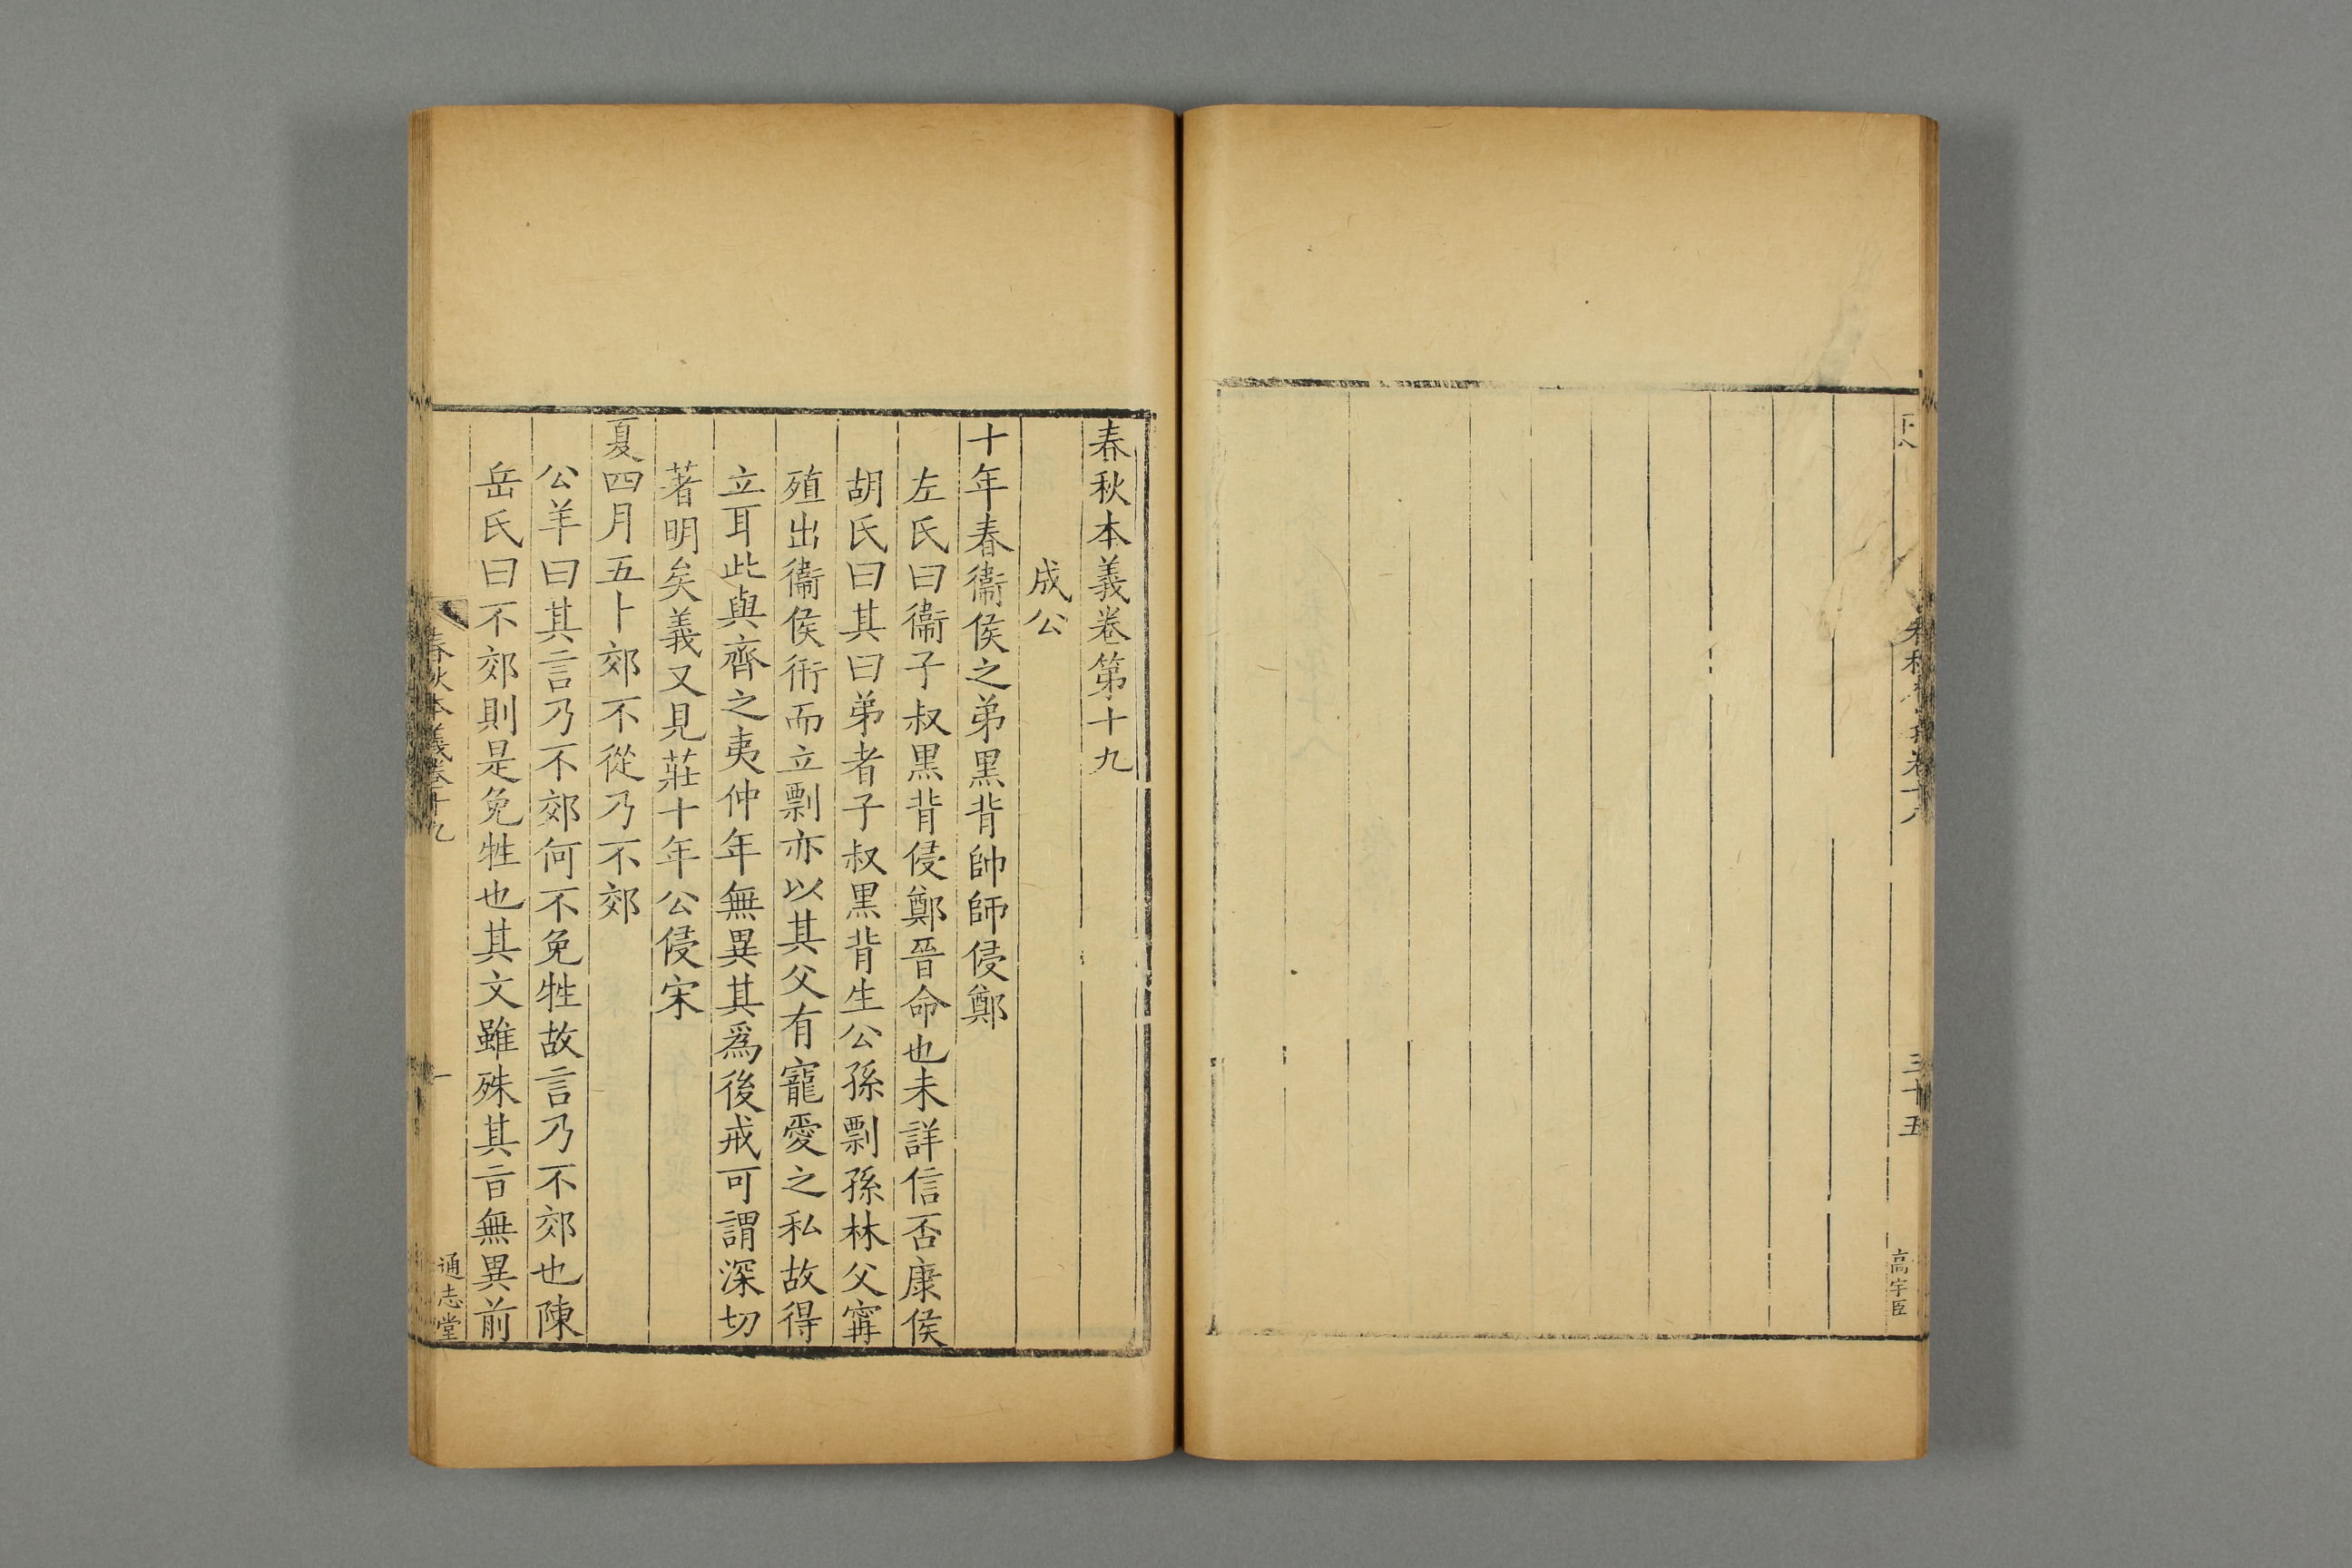 三十五
高宇臣
春秋本義卷第十九
成公
十年春衞侯之弟黑背帥師侵鄭
左氏曰衞子叔黑背侵鄭晉命也未詳信否康侯
胡氏曰其曰弟者子叔黑背生公孫剽孫林父甯
殖出衞侯衎而立剽亦以其父有寵愛之私故得
立耳此與齊之夷仲年無異其爲後戒可謂深切
著明矣義又見莊十年公侵宋
夏四月五卜郊不從乃不郊
公羊曰其言乃不郊何不免牲故言乃不郊也陳
岳氏曰不郊則是免牲也其文雖殊其旨無異前
春秋本義卷十九
一
通志堂